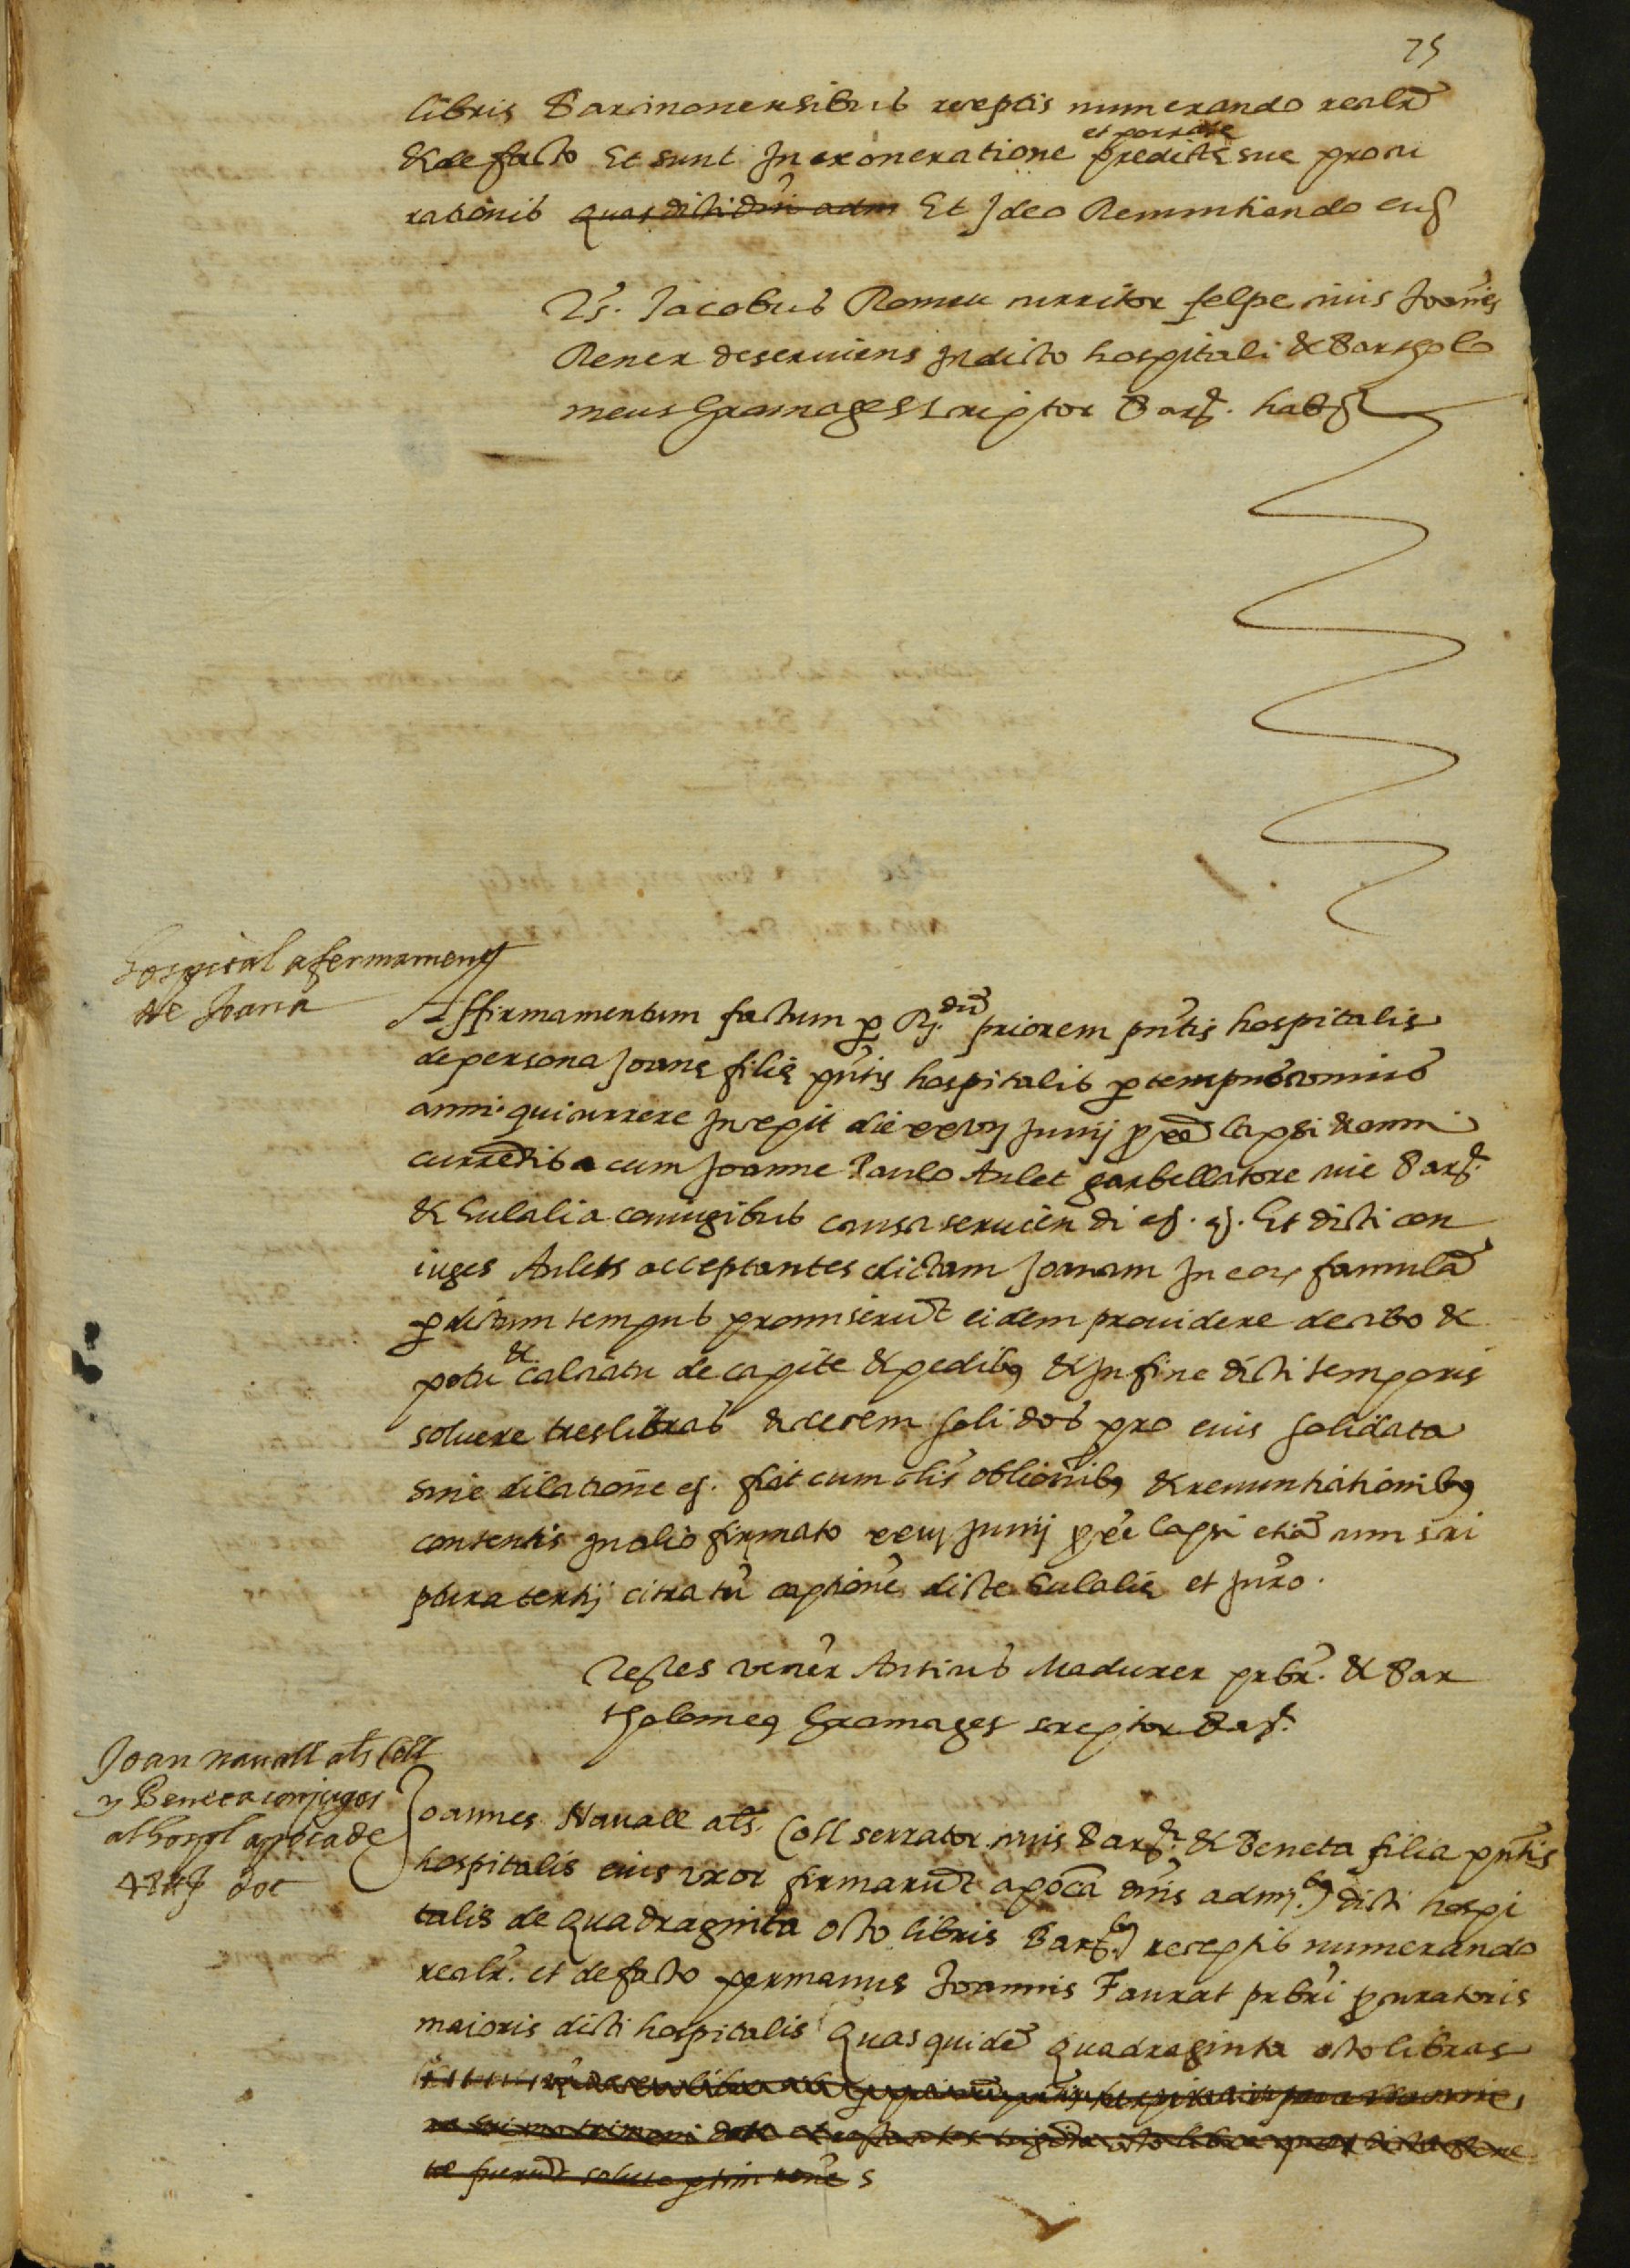 75
libris Barcinonensibus receptis numerando realr
& de facto Et sunt In exoneratione et parrate predicte sue procu
rationis quas dicti dni adm Et Ideo Renuntiando etc
Ts. Jacobus Romeu curritor felpe civis Joanes
Rener deserviens In dicto hospitali & Barthol
meus Gramages scriptor Barc. habts
hospital afermament
de Joana
Affirmamentum factum p R. du priorem pntis hospitalis
de persona Joane filie pntis hospitalis p tempus unius
anni qui currere Incepit die xxvij Junij pxe lapsi & anni
currentis a cum Joanne Paulo Aulet garbellatore cive Barc.
& Eulalia coniugibus causa serviendi etc. etc. Et dicti con
iuges Aulets acceptantes dictam Joanam In eor famula
p dictum tempus promiserut eidem providere de cibo &
potu & calciatu de capite & pedibus & In fine dicti temporis
solvere tres libras & decem solidos pro eius solidata
sine dilatione etc. fiat cum aliis oblionibus & renuntiationibus
contentis In alio firmato xxvij Junij pxe lapsi etia cum scri
ptura tertij citra tn captione dicte Eulalie et Juro.
Testes vener Anticus Madurer prbr. & Bar
tholomeus Gramages scriptor Barc.
Joan navall als Coll
y Beneta conjuges
al hospl apoca de
48 ll doc
Joannes Navall als. Coll serrator civis Barc. & Beneta filia pntis
hospitalis eius uxor firmarut apoca dnis admj. dicti hospi
talis de quadraginta octo libris Barc. receptis numerando
realr. et de facto per manus Joannis Faurat prbri pcuratoris
maioris dicti hospitalis Quas quide quadraginta octo libras